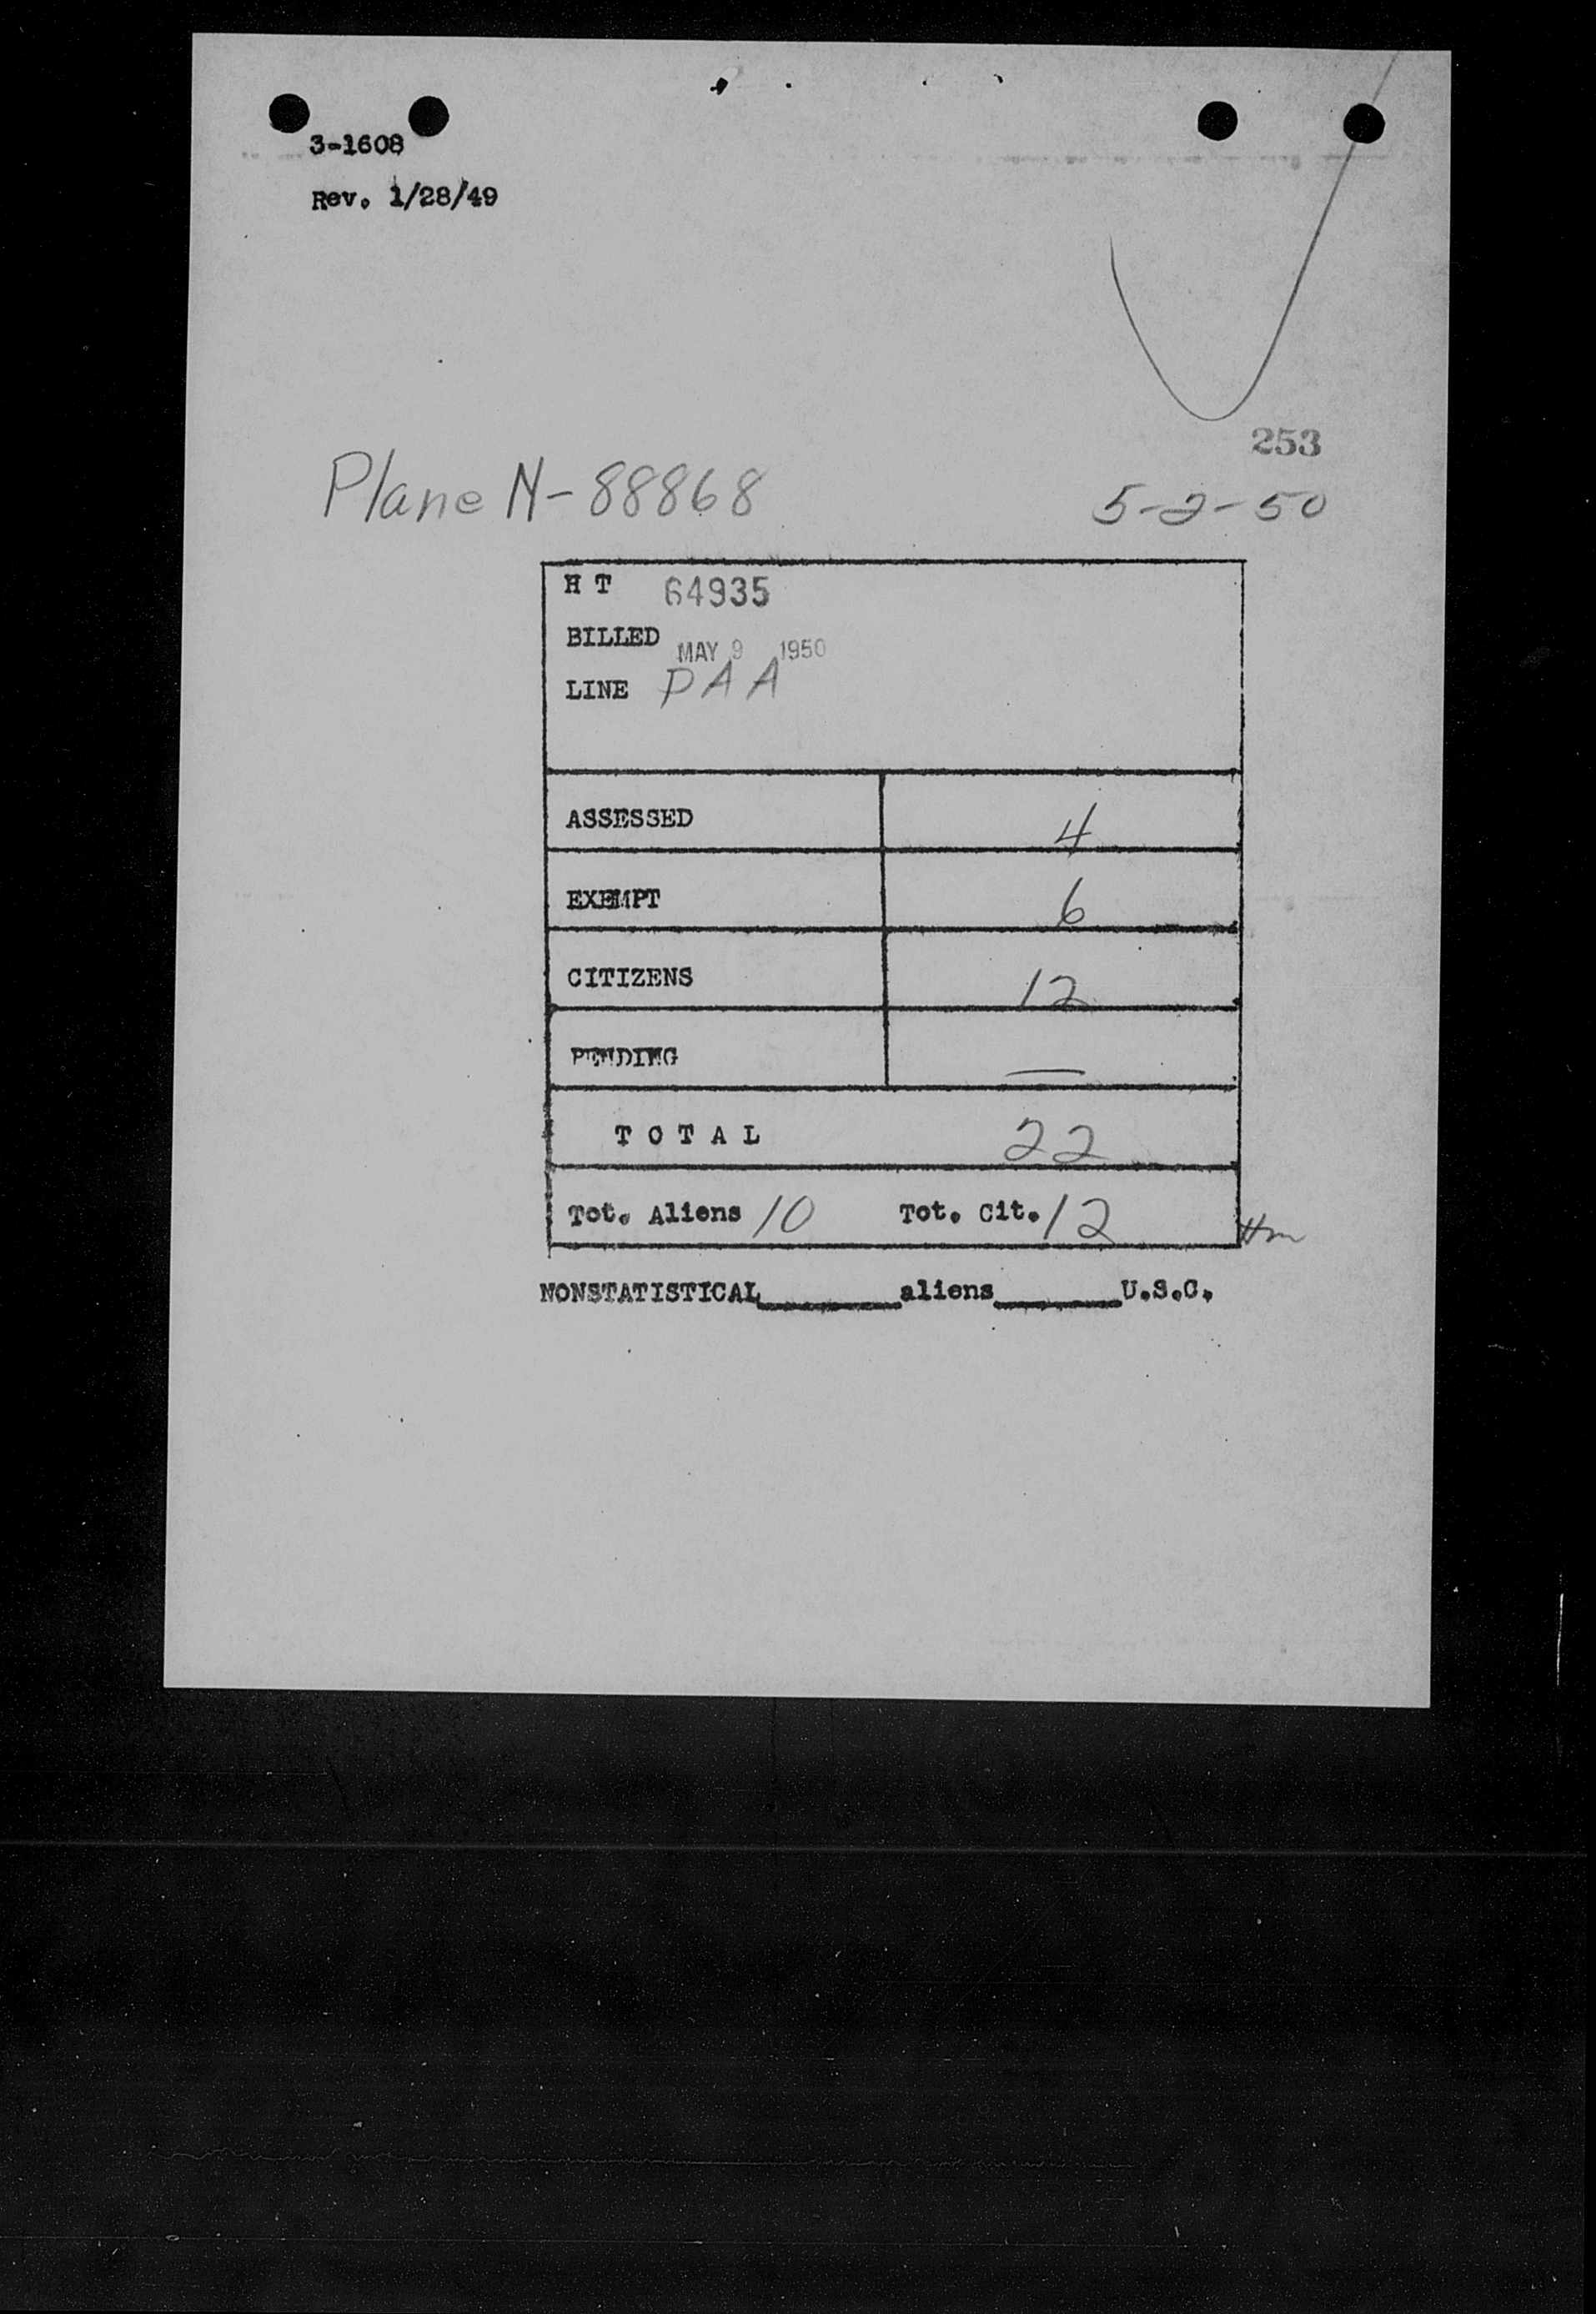 3-1608
Rev. 1/28/49
253
Plane N-88868 5-2-50
H T 64935
BILLED MAY 9 1950
LINE PAA
ASSESSED 4
EXEMPT 6
CITIZENS 12
PENDING —
T O T A L 22
Tot. Aliens 10 Tot. Cit. 12
NONSTATISTICAL________aliens_______U.S.C.